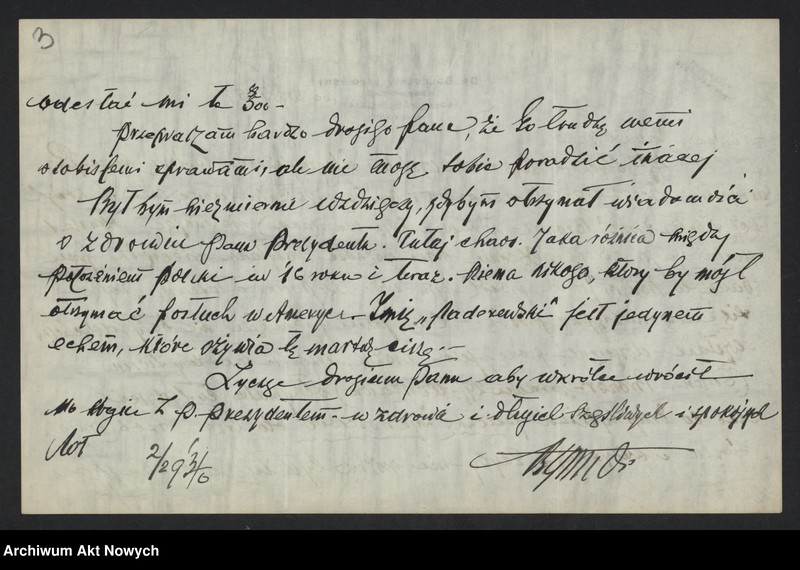 3
odesłać mi te $300 -
Przepraszam bardzo drogiego Pana, że Go trudzę memi
osobistemi sprawami, ale nie mogę sobie poradzić inaczej
Był bym niezmiernie wdzięczny, gdybym otrzymał wiadomości
o zdrowiu Pana Prezydenta. Tutaj chaos. Jaka różnica między
położeniem Polski w 16 roku i teraz. Niema nikogo, który by mógł
otrzymać posłuch w Ameryce. Imię „Paderewski" jest jedynem
echem, które ożywia tę martwą ciszę.-
Życzę drogiemu Panu aby wkrótce wrócił
z P. Prezydentem - w zdrowiu i szczęśliwych i spokojnych
lat